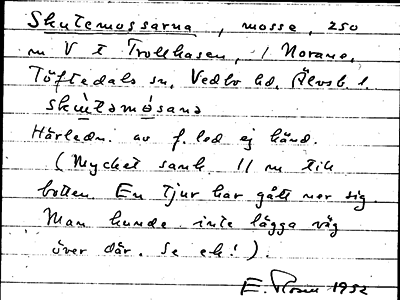 Skutemossarna, mosse, 250
m V t Trollhasen, i Norane,
Töftedals sn, Vedbo hd, Älvsb. l.
skùtəmòsanə
Härledn. av f. led ej känd.
(Mycket sank 11 m till
botten. En tjur har gått ner sig.
Man kunde inte lägga väg
över där. Se ek!).
E. 1952